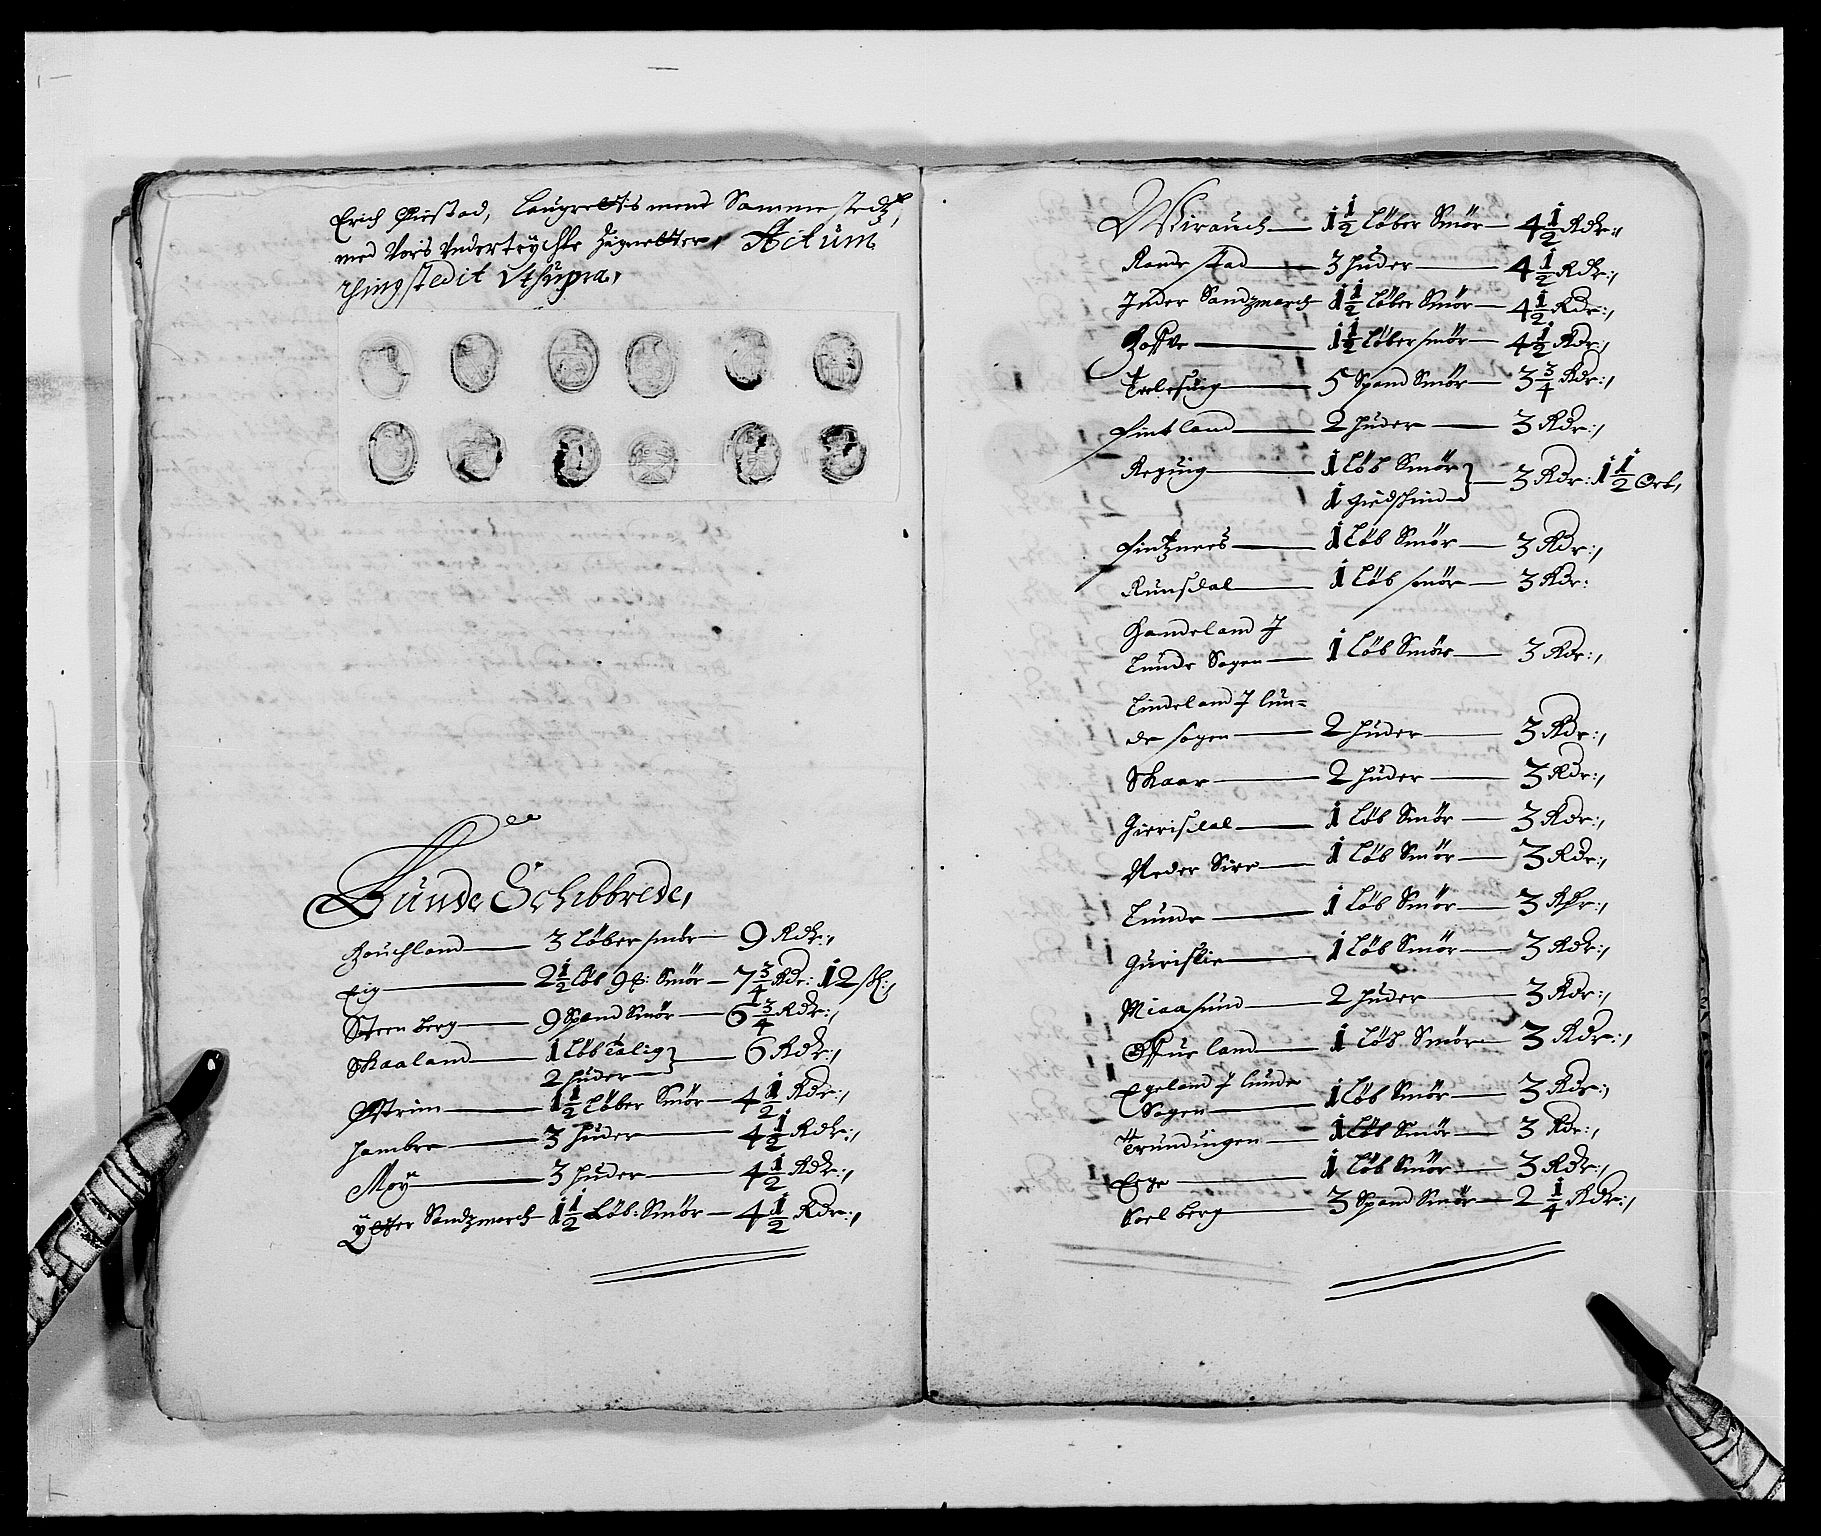 Erich Øiestad, Laugrettis mend Sammestedtz,
med Voris Undertrychte Zigneter, Actum
Thingstedit Ut supra,
Lunde Schibbrede,
Houchland 3 Løber smør 9 Rdr:,
Eig 2 1/2 Løb 9 Smør 7 3/4 Rdr: 12 sk:,
Steenberg 9 Spand Smør 6 3/4 Rdr:,
Skaaland 1 Løb talig 6 Rdr:,
2 huder
Østrim 1 1/2 Løber Smør 4 1/2 Rdr:,
Hambre 3 huder 4 1/2 Rdr:,
Moÿ 3 huder 4 1/2 Rdr:,
Ytter Sandzmarch 1 1/2 Løb: Smør 4 1/2 Rdr:,
Wirauch 1 1/2 Løber Smør 4 1/2 Rdr:,
Randestad 3 huder 4 1/2 Rdr:,
Inder Sandzmarch 1 1/2 Løber Smør 4 1/2 Rdr:,
1 1/2 Løber smør 4 1/2 Rdr:,
5 Spand Smør 3 3/4 Rdr:,
Fintland 2 huder 3 Rdr:,
Reguig 1 Løb Smør 3 Rdr: 1 1/2 Ort,
1 giedschind
Fintznees 1 Løb Smør 3 Rdr:,
Runsdal 1 Løb smør 3 Rdr:
Handeland J
Lunde Sogen 1 Løb Smør 3 Rdr:,
Lindeland J Lun=
de sogen 2 huder 3 Rdr:,
Skaar 2 huder 3 Rdr:,
Gierisdal 1 Løb Smør 3 Rdr:,
Neder Sire 1 Løb Smør 3 Rdr:,
Lunde 1 Løb Smør 3 Rdr:,
Gurislie 1 Løb Smør 3 Rdr:,
Miaasund 2 huder 3 Rdr:,
Øffueland 1 Løb Smør 3 Rdr:,
Egeland J Lunde
Sogen 1 Løb Smør 3 Rdr:,
Trundingen 1 Løb Smør 3 Rdr:,
Eege 1 Løb Smør 3 Rdr:,
Soelberg 3 Spand Smør 2 1/4 Rdr:,